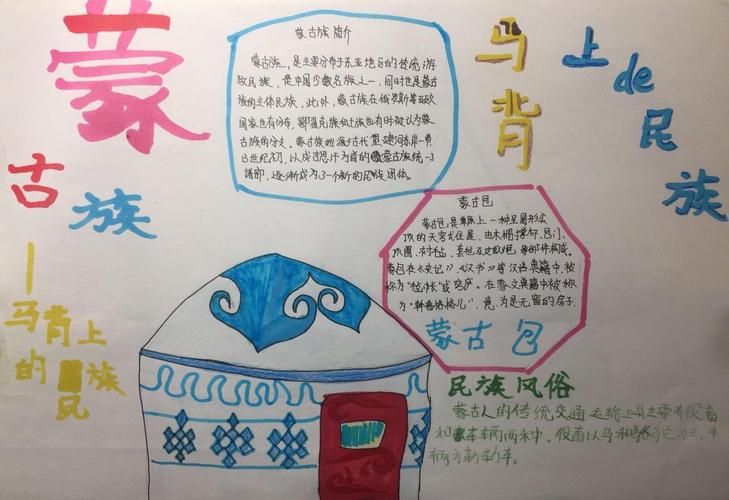 蒙
古族
—马背上
的民族
马背
上de民族
蒙古族简介
蒙古族,是主要分布于东亚地区的传统游
牧民族,是中国少数名族之一,同时也是蒙古
族的主体民族,此外,蒙古族在俄罗斯等亚欧
国家也有分布,鄂温克族和土族也有时被认为蒙
古族的分支。蒙古族始源于古代望建河东岸一带
13世纪初,以成吉思汗为首的蒙古族统一3
诸部,逐渐形成为3一个新的民族团体。
蒙古包
蒙古包,是草原上一种呈圆形尖
顶的天穹式住屋,由木栅撑杆、包门、
顶圈、衬毡、套毡及皮
等部件构成。
包在《史记》,《汉书》等汉语典籍中,被
称为"毡帐"或
在蒙文典籍中被称
为"斡鲁格台格儿",意为是无窗的房子
蒙古包
民族风俗
蒙古人的传统交通运输工具主要有役畜
和车辆两种。役畜以马和
为主,车
辆为
车。